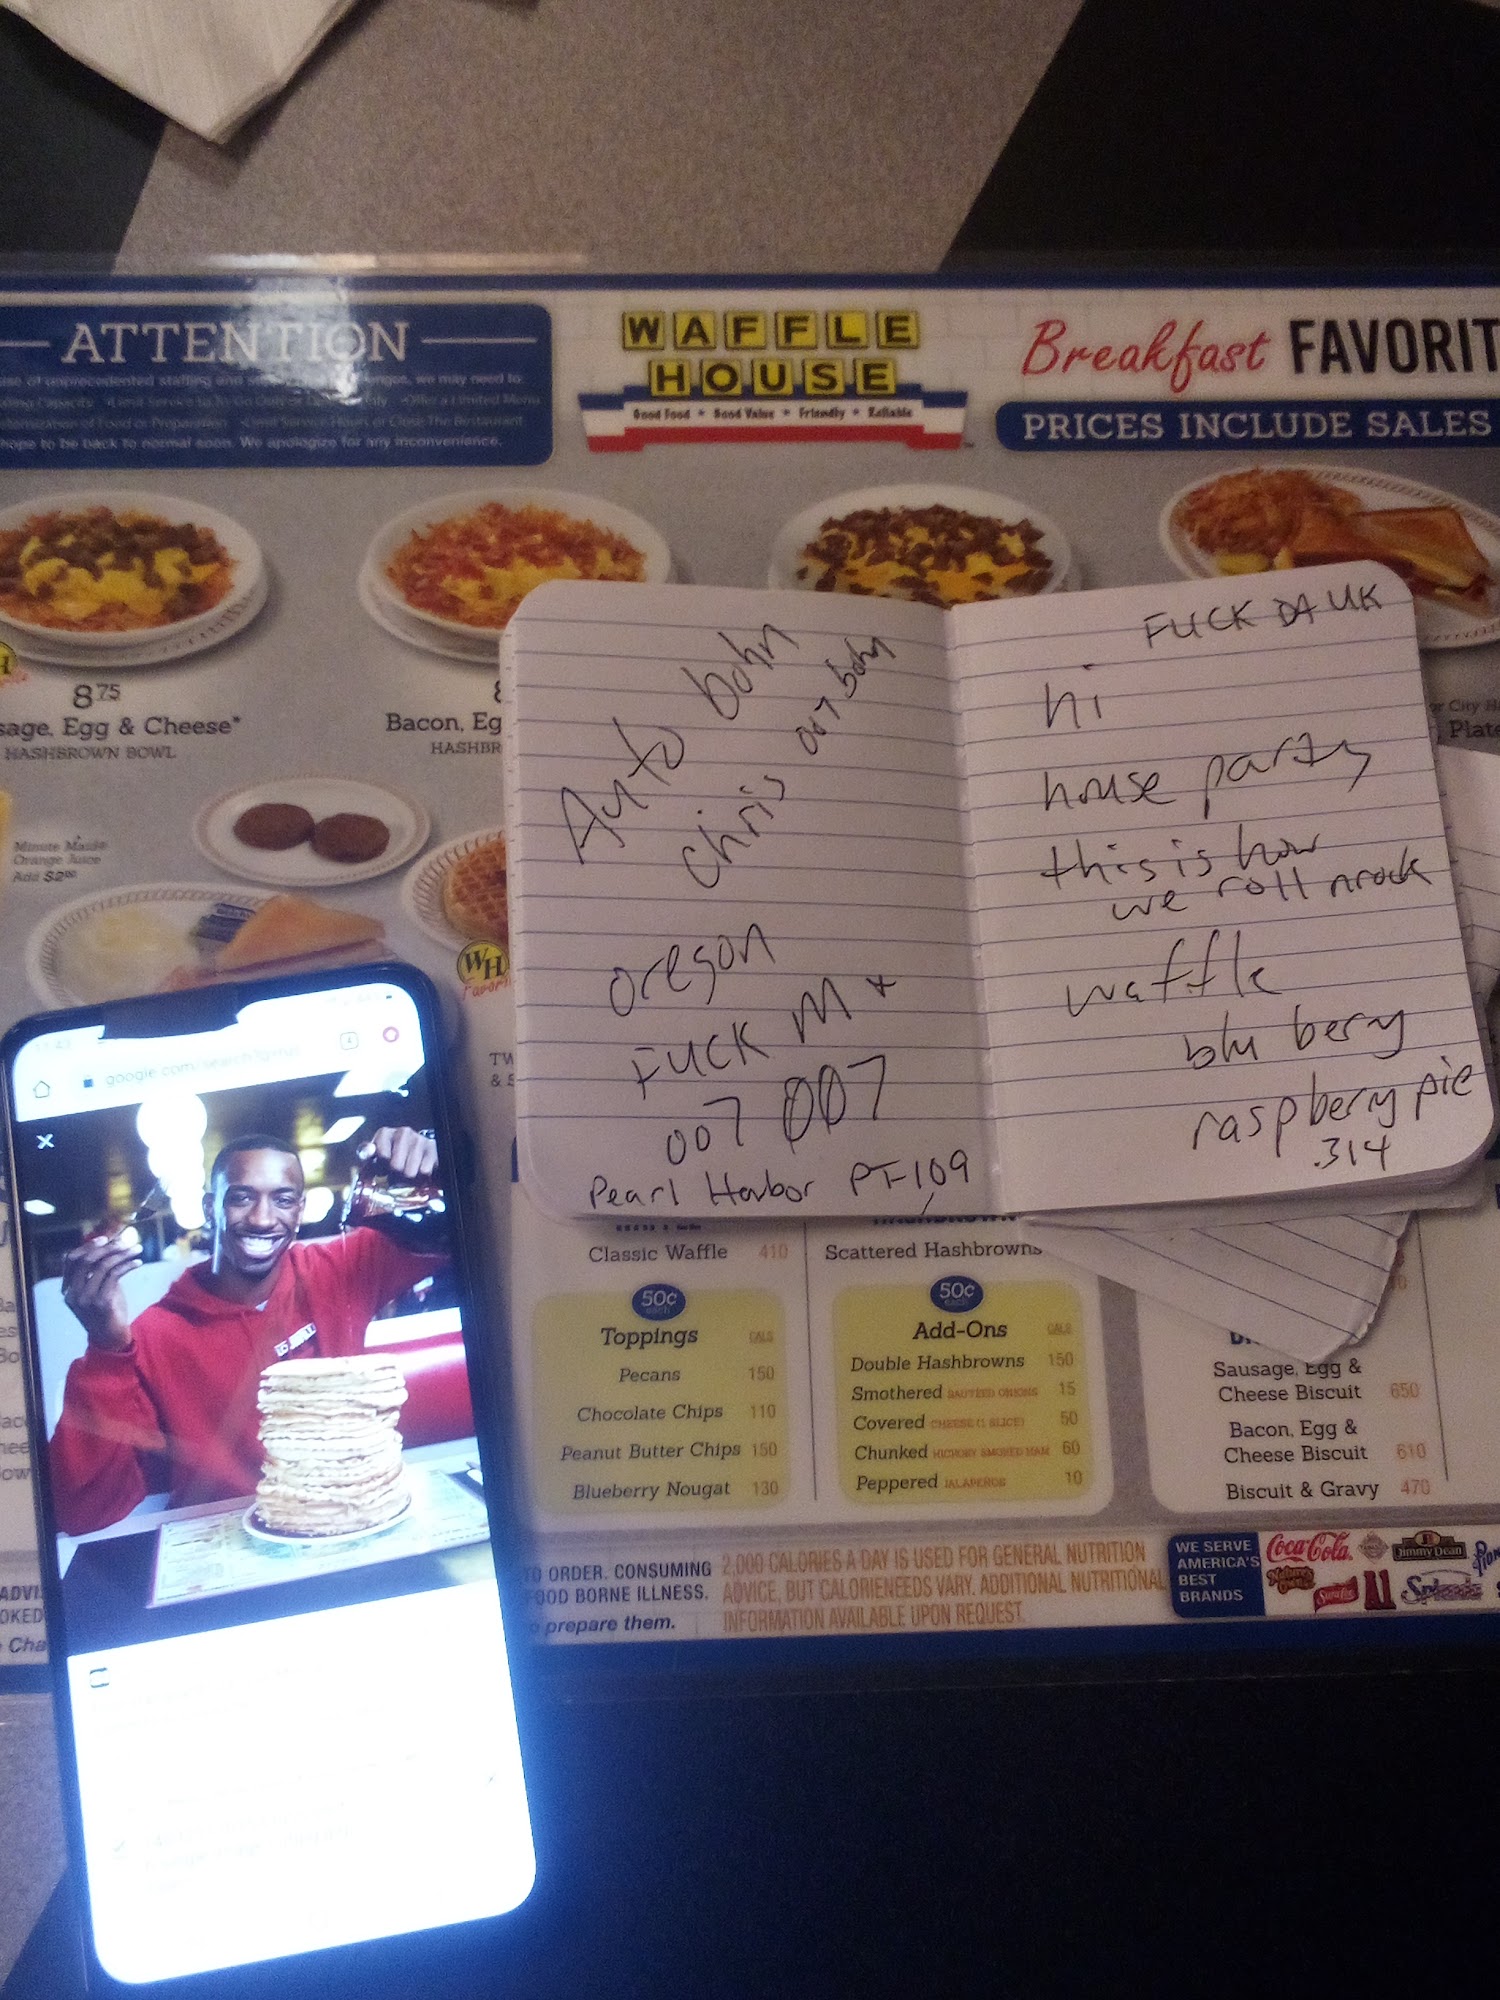 ATTENTION
we may need to:
hope to be back to normal soon. We apologize for any inconvenience.
WAFFLE
HOUSE
Good Food * Good Value * Friendly * Reliable
Breakfast FAVORIT
PRICES INCLUDE SALES
8.75
sage, Egg & Cheese*
HASHBROWN BOWL
Bacon, Eg
HASHBR
Plate
Minute Maid
Orange Juice
Add $2
WH
Favori
TW
& S
Auto bohn
Chris 007 bohn
oregon
FUCK M
007 007
Pearl Harbor PT-109
FUCK DA UK
hi
house party
this is how
we roll n rock
waffle
blu berry
raspberry pie
.314
google.com/search?
Classic Waffle 410
50¢
each
Toppings CALS
Pecans 150
Chocolate Chips 110
Peanut Butter Chips 150
Blueberry Nougat 130
Scattered Hashbrowns
50¢
each
Add-Ons CALS
Double Hashbrowns 150
Smothered SAUTEED ONIONS 15
Covered CHEESE (1 SLICE) 50
Chunked HICKORY SMOKED HAM 60
Peppered JALAPEÑOS 10
Sausage, Egg &
Cheese Biscuit 650
Bacon, Egg &
Cheese Biscuit 610
Biscuit & Gravy 470
TO ORDER. CONSUMING
FOOD BORNE ILLNESS.
prepare them.
2,000 CALORIES A DAY IS USED FOR GENERAL NUTRITION
ADVICE, BUT CALORIE NEEDS VARY. ADDITIONAL NUTRITIONAL
INFORMATION AVAILABLE UPON REQUEST.
WE SERVE
AMERICA'S
BEST
BRANDS
Coca-Cola
Jimmy Dean
A1
Splenda